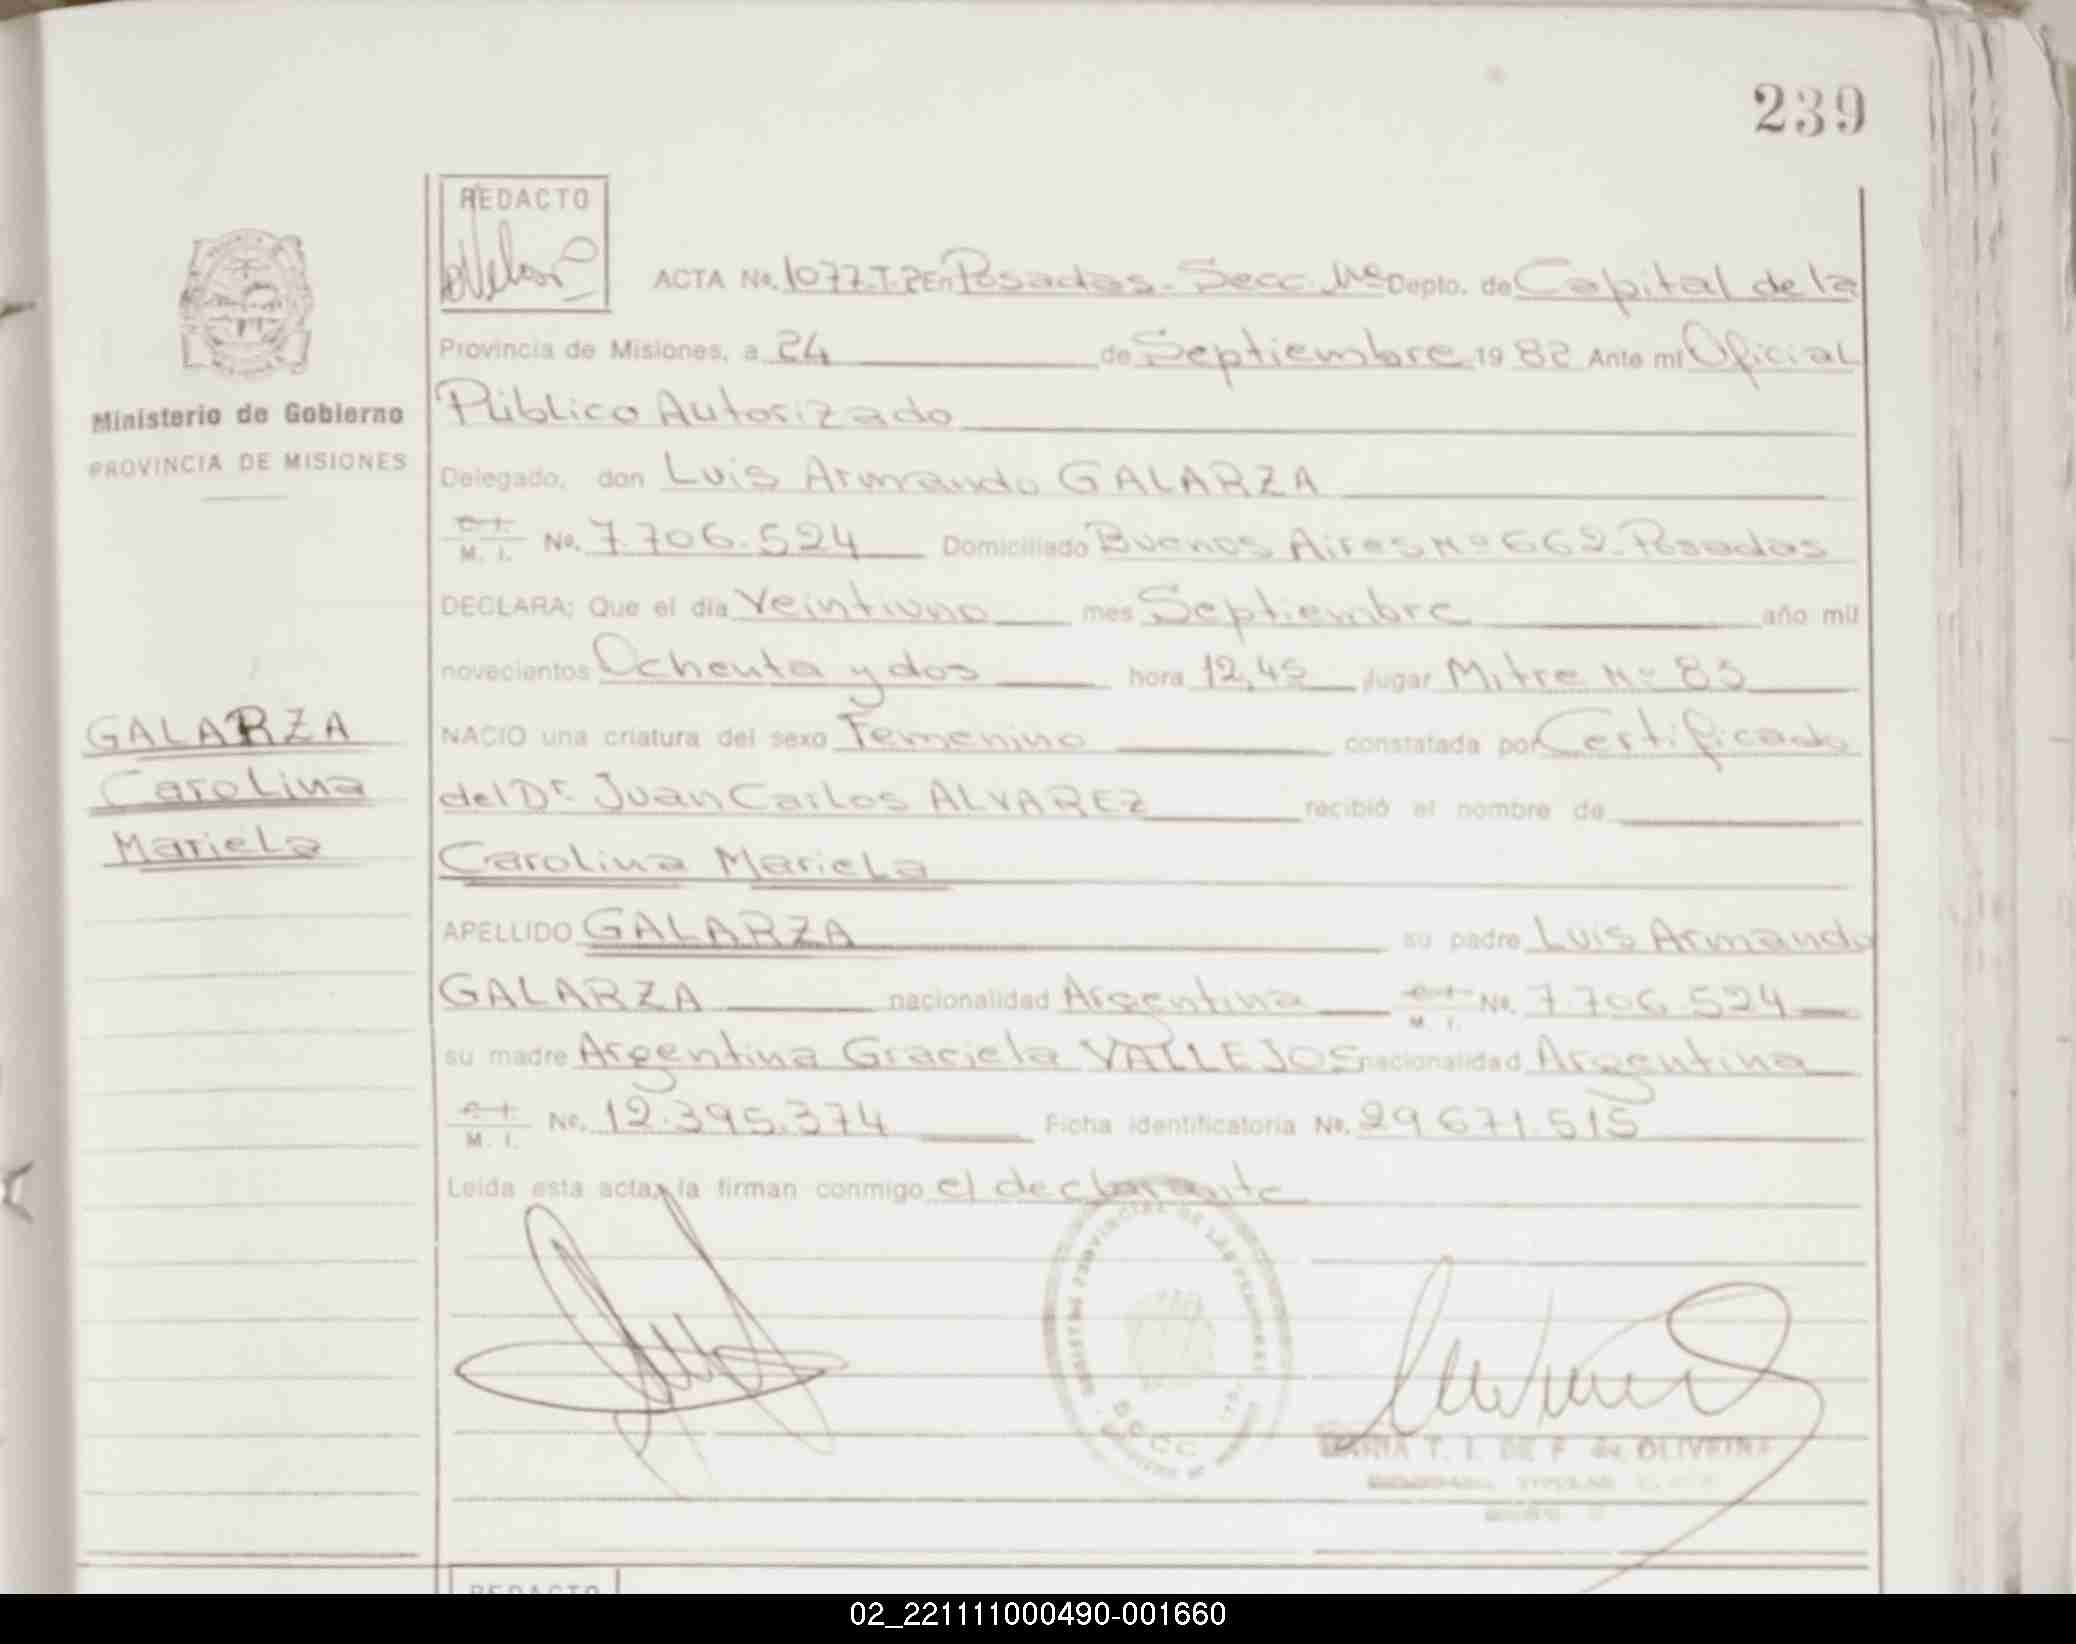 239
REDACTO
ACTA No. 1077.T.2 En Posadas. Secc. Depto. de Capital de la
Provincia de Misiones, a 24 de Septiembre 19 82 Ante mi Oficial
Público Autorizado
Ministerio de Gobierno
PROVINCIA DE MISIONES
Delegado, don Luis Armando GALARZA
M. I. No. 7.706.524 Domiciliado Buenos Aires Nº 662. Posadas
DECLARA; Que el día Veintiuno mes Septiembre año mil
novecientos Ochenta y dos hora 12,45 lugar Mitre Nº 85
GALARZA
Carolina
Mariela
NACIO una criatura del sexo Femenino constatada por Certificado
del Dr. Juan Carlos ALVAREZ recibió el nombre de
Carolina Mariela
APELLIDO GALARZA su padre Luis Armando
GALARZA nacionalidad Argentina M. I. No. 7.706.524
su madre Argentina Graciela VALLEJOS nacionalidad Argentina
M. I. No. 12.395.374 Ficha identificatoria No. 29.671.515
Leida esta acta, la firman conmigo el declarante
REGISTRO PROVINCIAL DE LAS PERSONAS
MARIA T. I. DE F. de OLIVEIRA
REDACTO
02_221111000490-001660